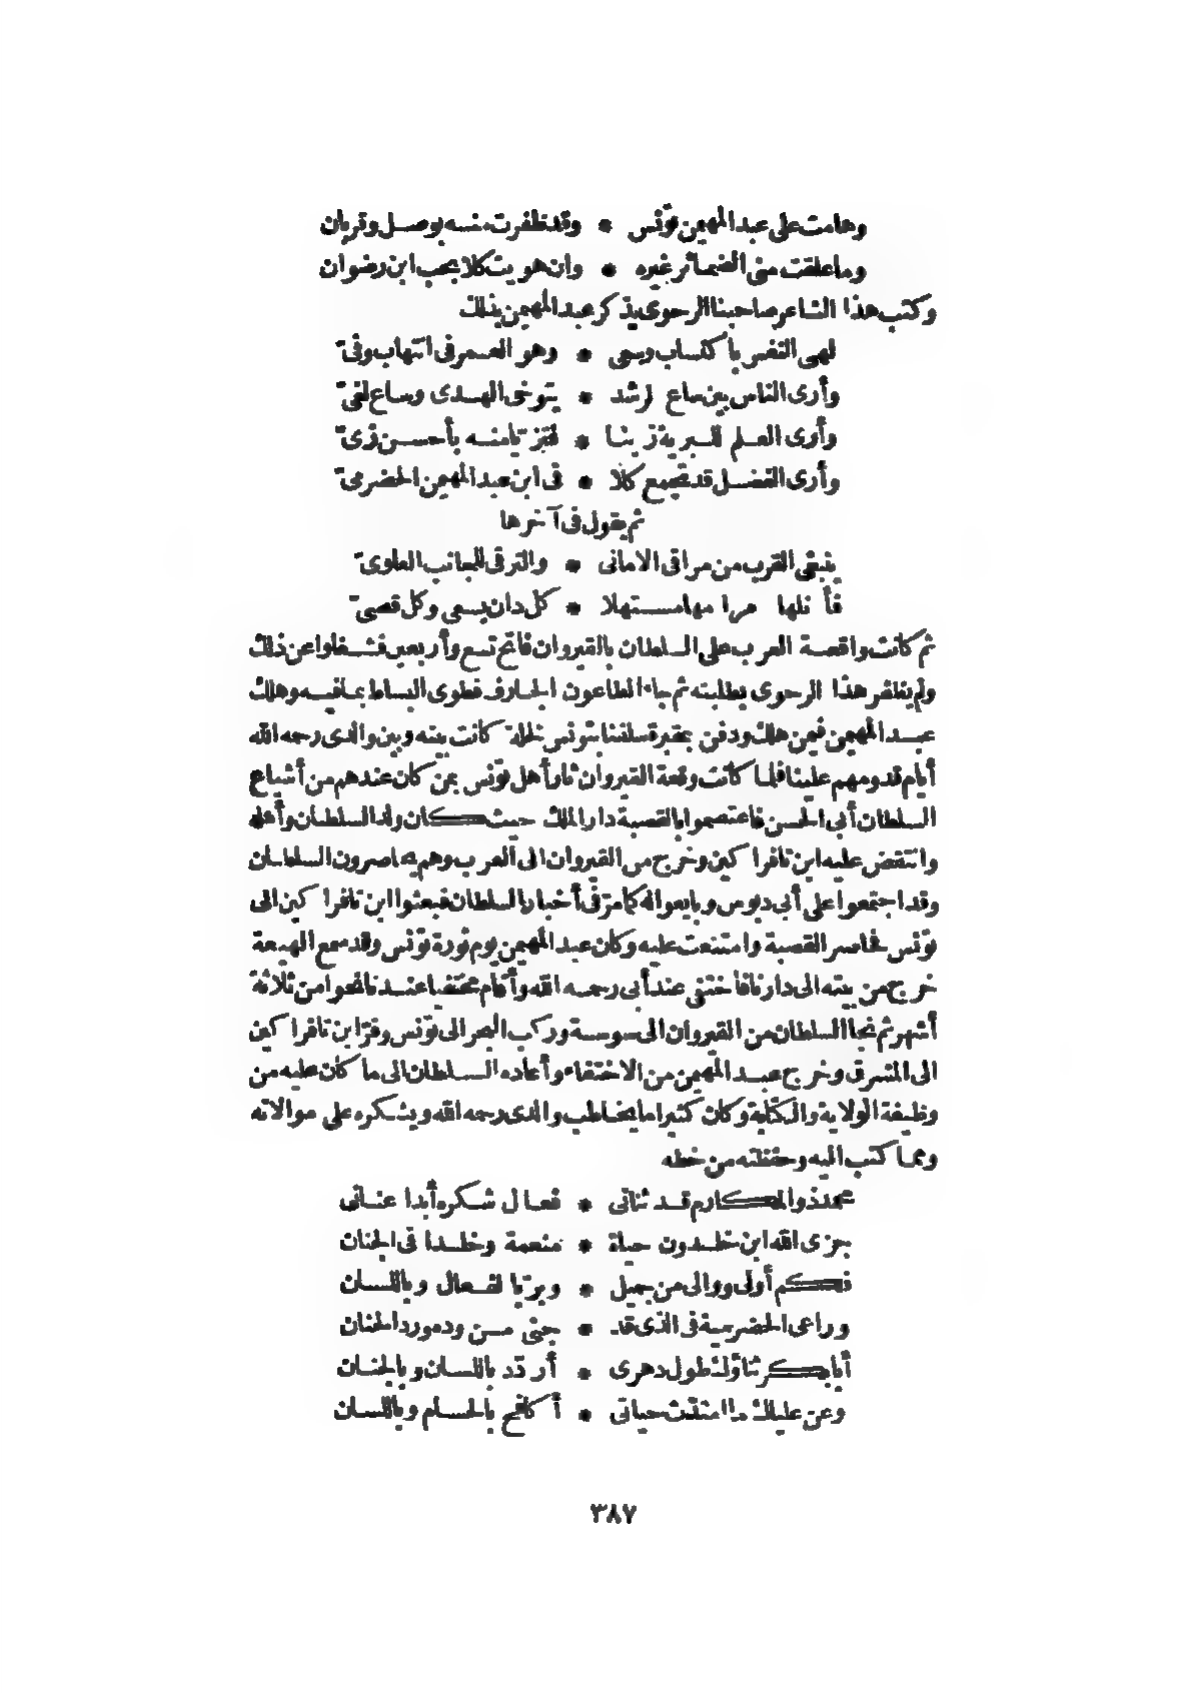 وهامت على عبد المهيمن تونس * وقد ظفرت منه بوصل وقربان
وما علقت منى الضمائر غيره * وان هويت كلا بحب ابن رضوان
وكتب هذا الشاعر صاحبنا الرحوى يذكر عبد المهيمن بذلك
لهى النفس باكتساب وسعى * وهو العمر فى انتهاب وفىّ
وأرى الناس بين ساع لرشد * يتوخى الهدى وساع لغىّ
وأرى العلم للبرية زينا * فتزىّ منه بأحسن زىّ
وأرى الفضل قد تجمع كلا * فى ابن عبد المهيمن الحضرمىّ
ثم يقول فى آخرها
يبتغى القرب من مراقى الامانى * والترقى للجانب العلوىّ
فأنلها مرامها مستهلا * كل دان يسعى وكل قصىّ
ثم كانت واقعة العرب على السلطان بالقيروان فاتح تسع وأربعين فشغلوا عن ذلك
ولم يظفر هذا الرحوى بطلبته ثم جاء الطاعون الجارف فطوى البساط بما فيه وهلك
عبد المهيمن فيمن هلك ودفن بمقبرة سلفنا بتونس لخلة كانت بينه وبين والدى رحمه الله
أيام قدومهم علينا فلما كانت وقعة القيروان ثار أهل تونس بمن كان عندهم من أشياع
السلطان أبى الحسن فاعتصموا بالقصبة دار الملك حيث كان ولد السلطان وأهله
وانتقض عليه ابن تافراكين وخرج من القيروان الى العرب وهم يحاصرون السلطان
وقد اجتمعوا على أبى دبوس وبايعوا له كما مرّ فى أخبار السلطان فبعثوا ابن تافراكين الى
تونس فحاصر القصبة وامتنعت عليه وكان عبد المهيمن يوم ثورة تونس وقد سمع الهيعة
خرج من بيته الى دارنا فاختفى عند أبى رحمه الله وأقام مختفيا عندنا نحوا من ثلاثة
أشهر ثم نجا السلطان من القيروان الى سوسة وركب البحر الى تونس وفرّ ابن تافراكين
الى المشرق وخرج عبد المهيمن من الاختفاء وأعاده السلطان الى ما كان عليه من
وظيفة الولاية والكتابة وكان كثيرا ما يخاطب والدى رحمه الله ويشكره على موالاته
ومما كتب اليه وحفظته من خطه
محمد ذو المكارم قد ثنانى * فعال شكره أبدا عنانى
جزى الله ابن خلدون حياة * منعمة وخلدا فى الجنان
فكم أولى ووالى من جميل * وبرّ بالفعال وباللسان
وراعى الحضرمية فى الذى قد * جنى من وده ورد الجنان
أبا بكر ثناؤك طول دهرى * أردّد باللسان وبالجنان
وعن علياك ما امتدّت حياتى * أكافح بالحسام وباللسان
٣٨٧